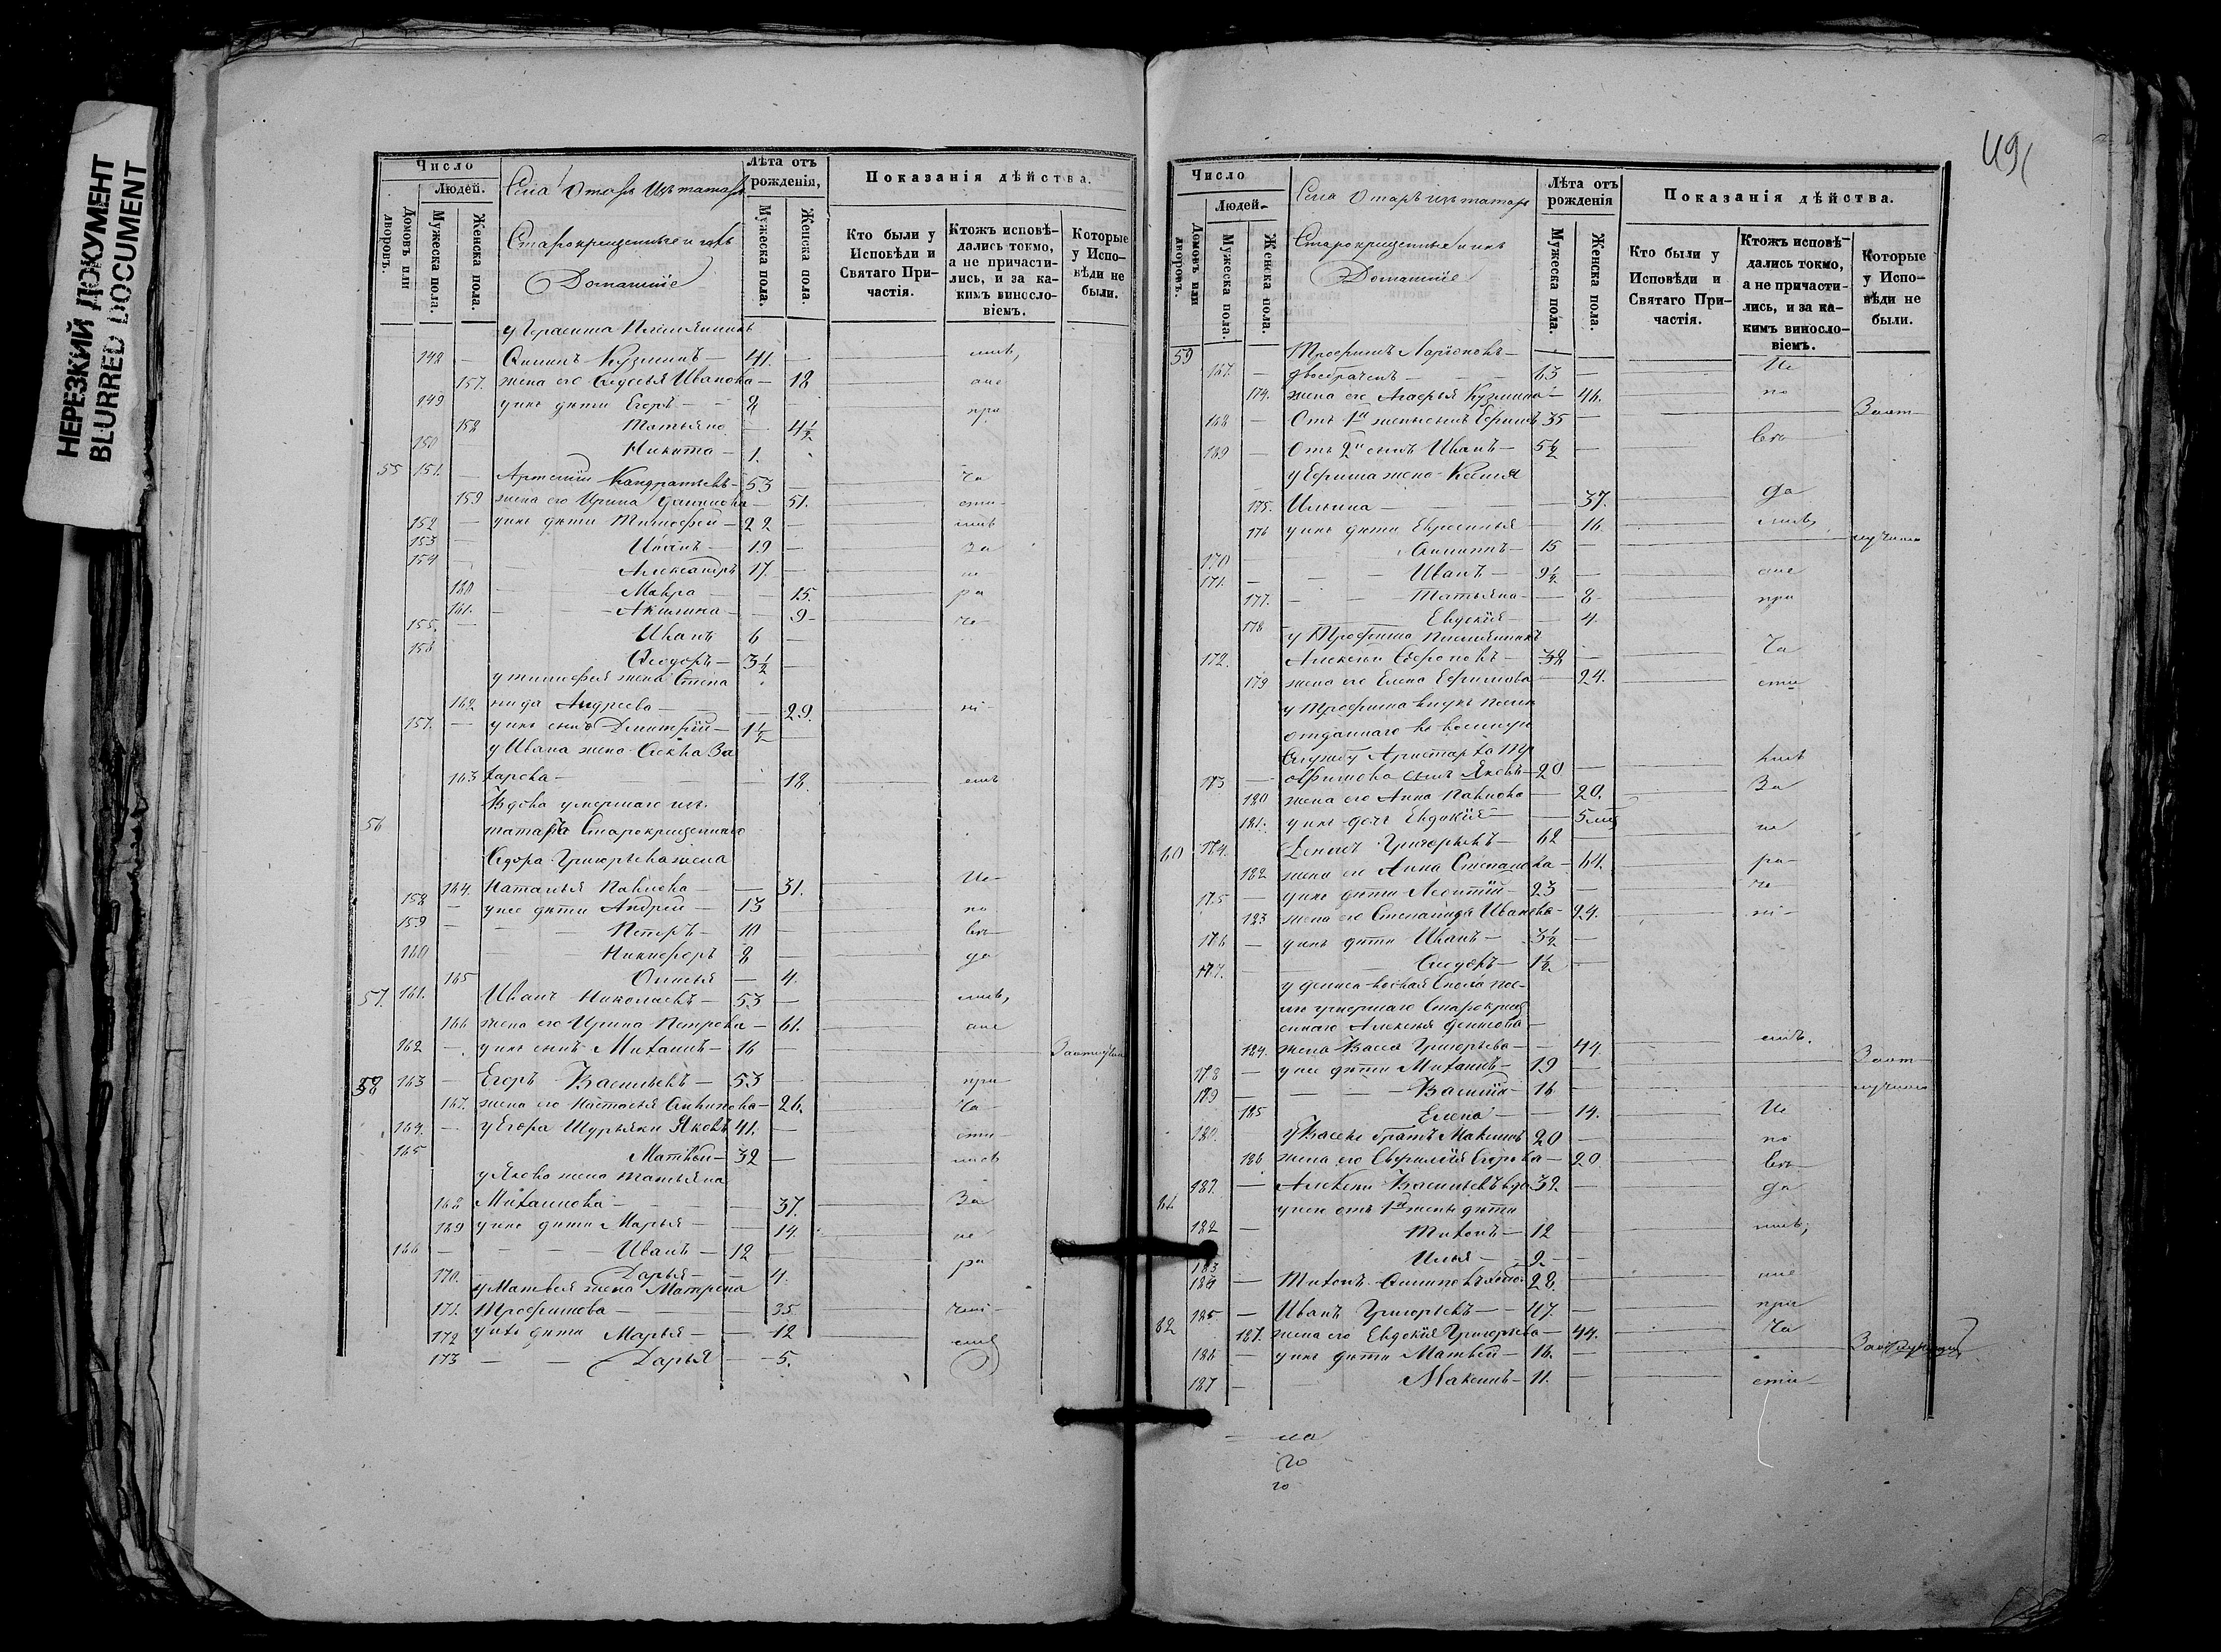 НЕРЕЗКИЙ ДОКУМЕНТ
BLURRED DOCUMENT
Число
Людей.
Домовъ или дворовъ.
Мужеска пола.
Женска пола.
Села Отаръ Изъ татаръ
Старокрещенные и ихъ
Домашніе
Лѣта отъ рожденія,
Мужеска пола.
Женска пола.
Показанія дѣйства.
Кто были у Исповѣди и Святаго Причастія.
Ктожъ исповѣдались токмо, а не причастились, и за какимъ винословіемъ.
Которые у Исповѣди не были.
у Герасима Племянникъ
148 — Кузминъ — 41. —
157. жена его Ѳедосья Иванова — 18 ане
149 у ихъ дѣти Егоръ — 8 — при
158 Татьяна — 4½
150 Никита — 1.
55 151. — Артемій Кандратьевъ — 53 — ча
159 жена его Ирина Данилова — 51. сти
152 — у ихъ дѣти Тимофей — 22 —
153 — Иванъ — 19 — за
154 — Александръ 17. — не
160 Мавра — 15. ра
161. Акилина — 9
155. Иванъ 6 —
156 Ѳеодоръ — 3½ —
у Тимофея жена Степа
162 нида Андреева — 29.
157. — у ихъ сынъ Димитрій — 1½ —
у Ивана жена Ѳекла За
163 харова — 18.
56 Вдова умершаго изъ
татаръ Старокрещеннаго
Сидора Григорьева жена
164. Наталья Павлова — 31. Не
158 — у нее дѣти Андрей — 13 — по
159 — Петръ — 10 —
160 Никифоръ 8 — да
165 — 4.
57. 161. Иванъ Николаевъ — 53 —
166 жена его Ирина Петрова — 61. ане
162 — у ихъ сынъ Михаилъ — 16 —
58 163 — Егоръ Васильевъ — 53 — при
167. жена его Настасья — 26. ча
164. — у Егора Шурьяки Яковъ 41. — сти
165 Матвѣй — 32 —
у Якова жена Татьяна
168 Михаилова — 37. За
169 у ихъ дѣти Марья — 14. не
166 — Иванъ — 12 — ра
170. Дарья — 4.
у Матвея жена Матрена
171. Трофимова — 35
172 у ихъ дѣти Марья — 12
173 — Дарья — 5.
Число
Людей
Домовъ или дворовъ.
Мужеска пола.
Женска пола.
Села Отаръ изъ татаръ
Старокрещенные и ихъ
Домашніе
Лѣта отъ рожденія
Мужеска пола.
Женска пола.
Показанія дѣйства.
Кто были у Исповѣди и Святаго Причастія.
Ктожъ исповѣдались токмо, а не причастились, и за какимъ винословіемъ.
Которые у Исповѣди не были.
491
59 Трофимъ Ларіоновъ —
167. — двоебраченъ — 63 — Не
174. жена его Агафья Кузмина — 46. по
168 — Отъ 1й жены сынъ Ефимъ 35 —
169 — Отъ 2й сынъ Иванъ — 5½ —
у Ефима жена Ксенія
175. Ильина — 37. да
176 у ихъ дѣти Евросинья — 16.
170 — 15 —
171. — Иванъ — 9½ — ане
177. Татьяна — 8 при
178 Евдокія — 4.
у Трофима Племянникъ
172. Алексѣй — 38 — ча
179 жена его Елена Ефимова — 24. сти
у Трофима внукъ после
отданнаго въ военную
Службу Аристарха Тр
173 — офимова сынъ Яковъ — 20 —
180 жена его Анна Павлова — 20. За
181. у ихъ дочь Евдокія — 5 мѣ
60 174. Денисъ Григорьевъ — 62 не
182 жена его Анна Степанова — 64. ра
175 — у ихъ дѣти Леонтій — 23 —
183 жена его Степанида Иванова — 24.
176 — у ихъ дѣти Иванъ — 3½ —
177. — Ѳедоръ — 1½ —
у Дениса
умершаго Старокрещ
еннаго Алексѣя Денисова
184. жена Васса Григорьева — 44.
178 — у нее дѣти Михаилъ — 19 —
179 — Василій — 16 —
185 Елена — 14. Не
180. у Вассы братъ Максимъ 20 — по
186 жена его Егорова — 20
61 181. — Алексѣй Васильевъ вдо 32 — да
у него отъ 1й жены дѣти
182 — Тихонъ — 12 —
183 Илья — 9 —
184 — Тихонъ 28. — ане
62 185 — Иванъ Григорьевъ — 47. — при
187. жена его Евдокія Григорьева — 44. ча
186 — у ихъ дѣти Матвѣй — 16. —
187 — Максимъ — 11. — сти